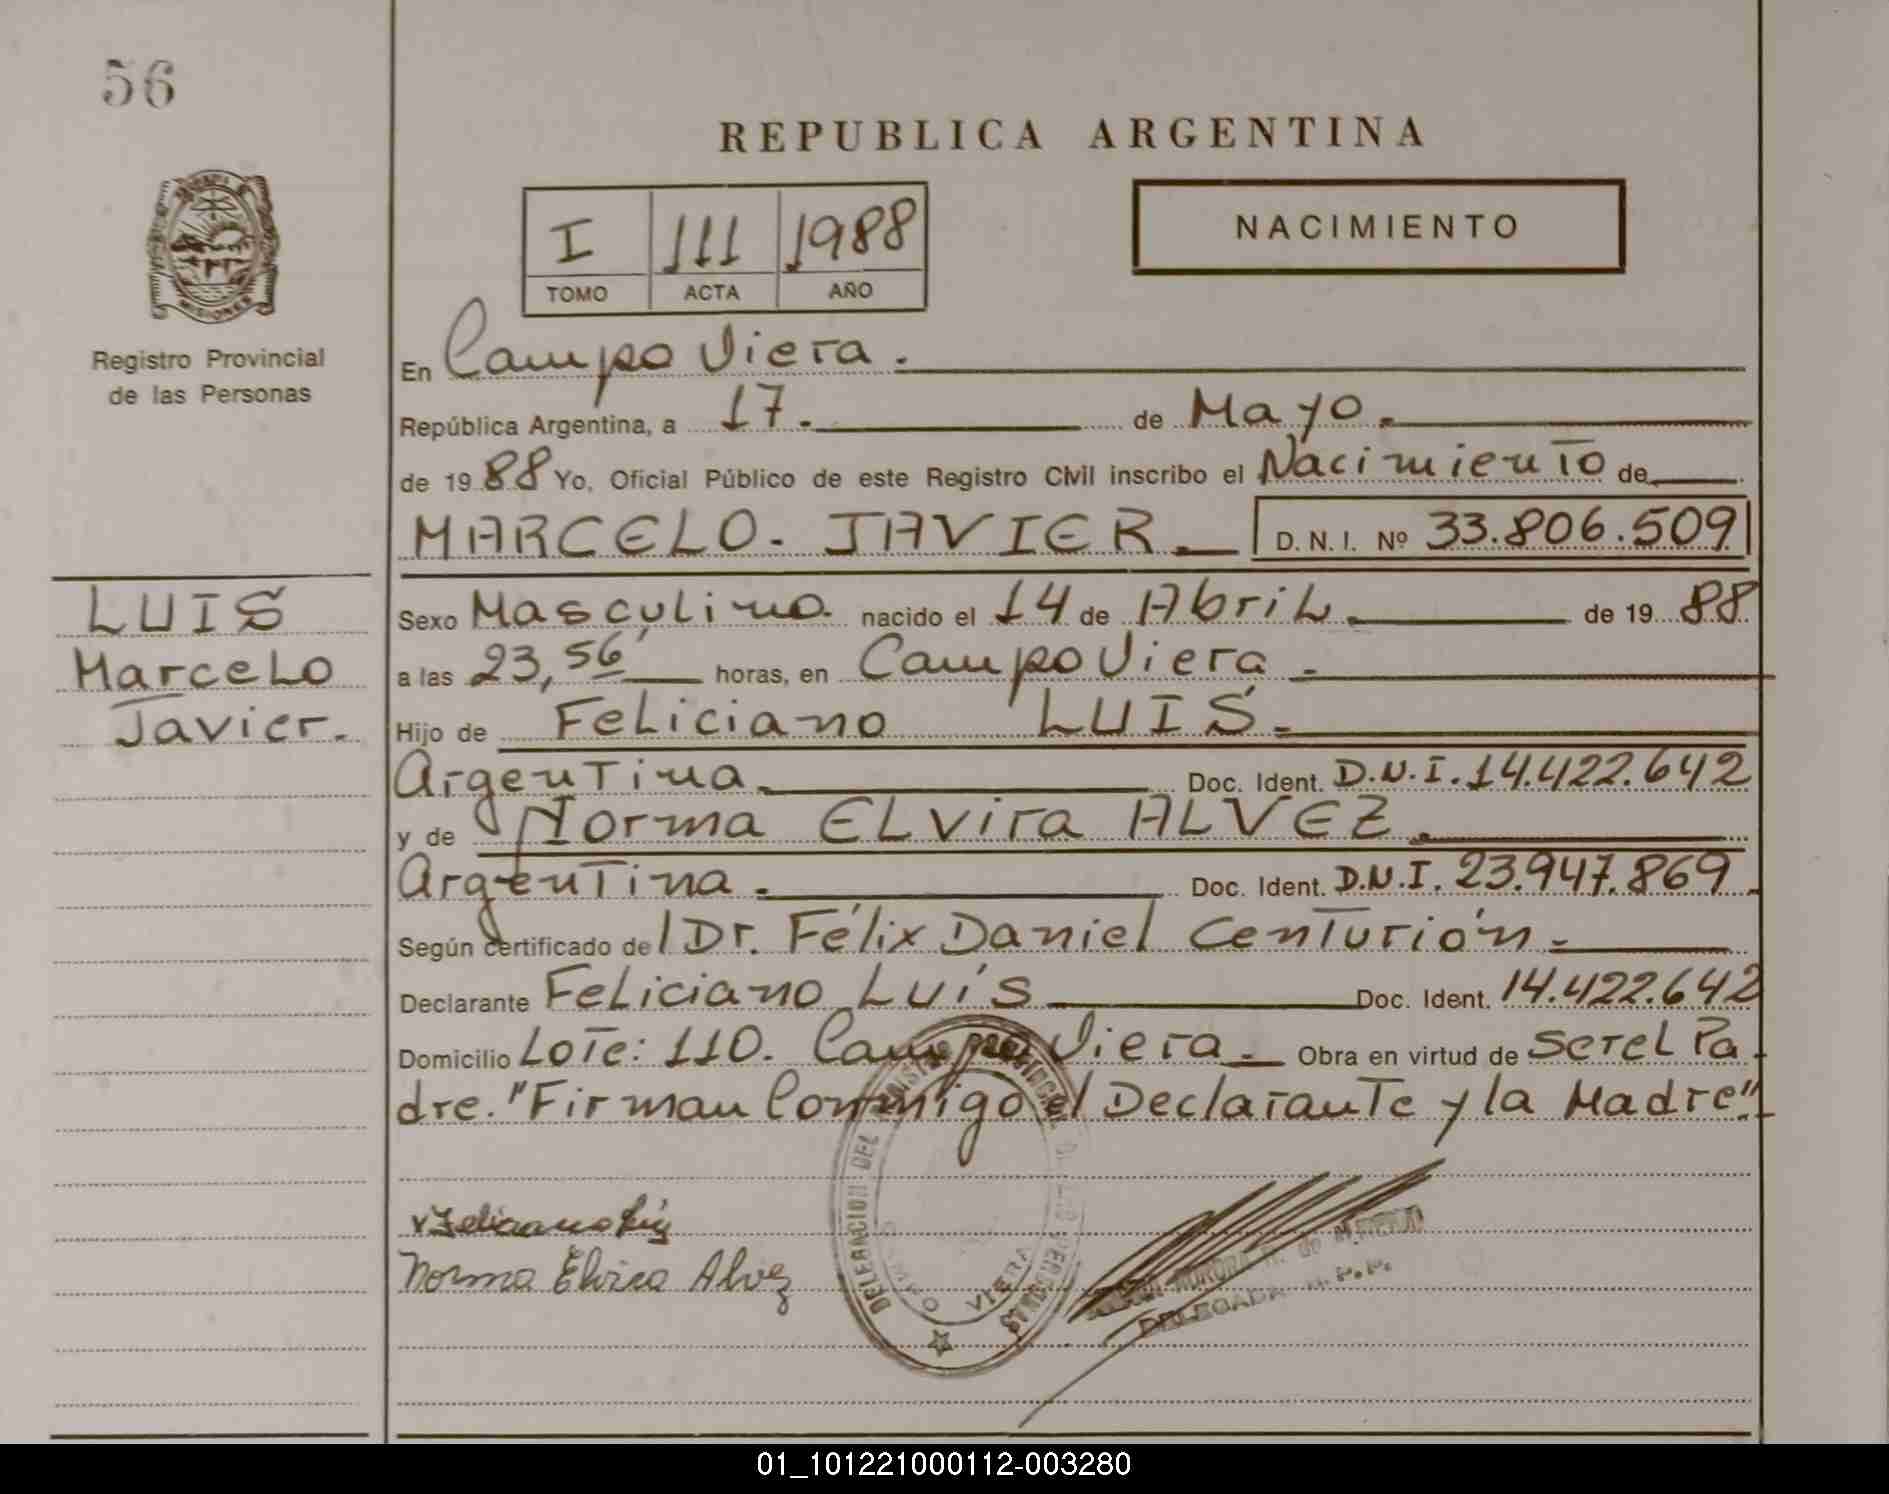 56
REPUBLICA ARGENTINA
I 111 1988
TOMO ACTA AÑO
NACIMIENTO
MISIONES
Registro Provincial
de las Personas
En Campo Viera.
República Argentina, a 17. de Mayo.
de 19 88 Yo, Oficial Público de este Registro Civil inscribo el Nacimiento de
MARCELO. JAVIER D. N. I. Nº 33.806.509
LUIS
Marcelo
Javier.
Sexo Masculino. nacido el 14 de Abril. de 19 88
a las 23,56' horas, en Campo Viera.
Hijo de Feliciano LUIS.
Argentina. Doc. Ident. D.N.I. 14.422.642
y de Norma Elvira ALVEZ.
Argentina. Doc. Ident. D.N.I. 23.947.869.
Según certificado del Dr. Félix Daniel Centurión.
Declarante Feliciano Luís Doc. Ident. 14.422.642
Domicilio Lote: 110. Campo Viera. Obra en virtud de Ser el Pa
dre. "Firman Conmigo el Declarante y la Madre".
x Feliciano Luis
Norma Elvira Alvez
DELEGACION DEL REGISTRO PROVINCIAL DE LAS PERSONAS
CAMPO VIERA
DELEGADA R.P.P.
01_101221000112-003280